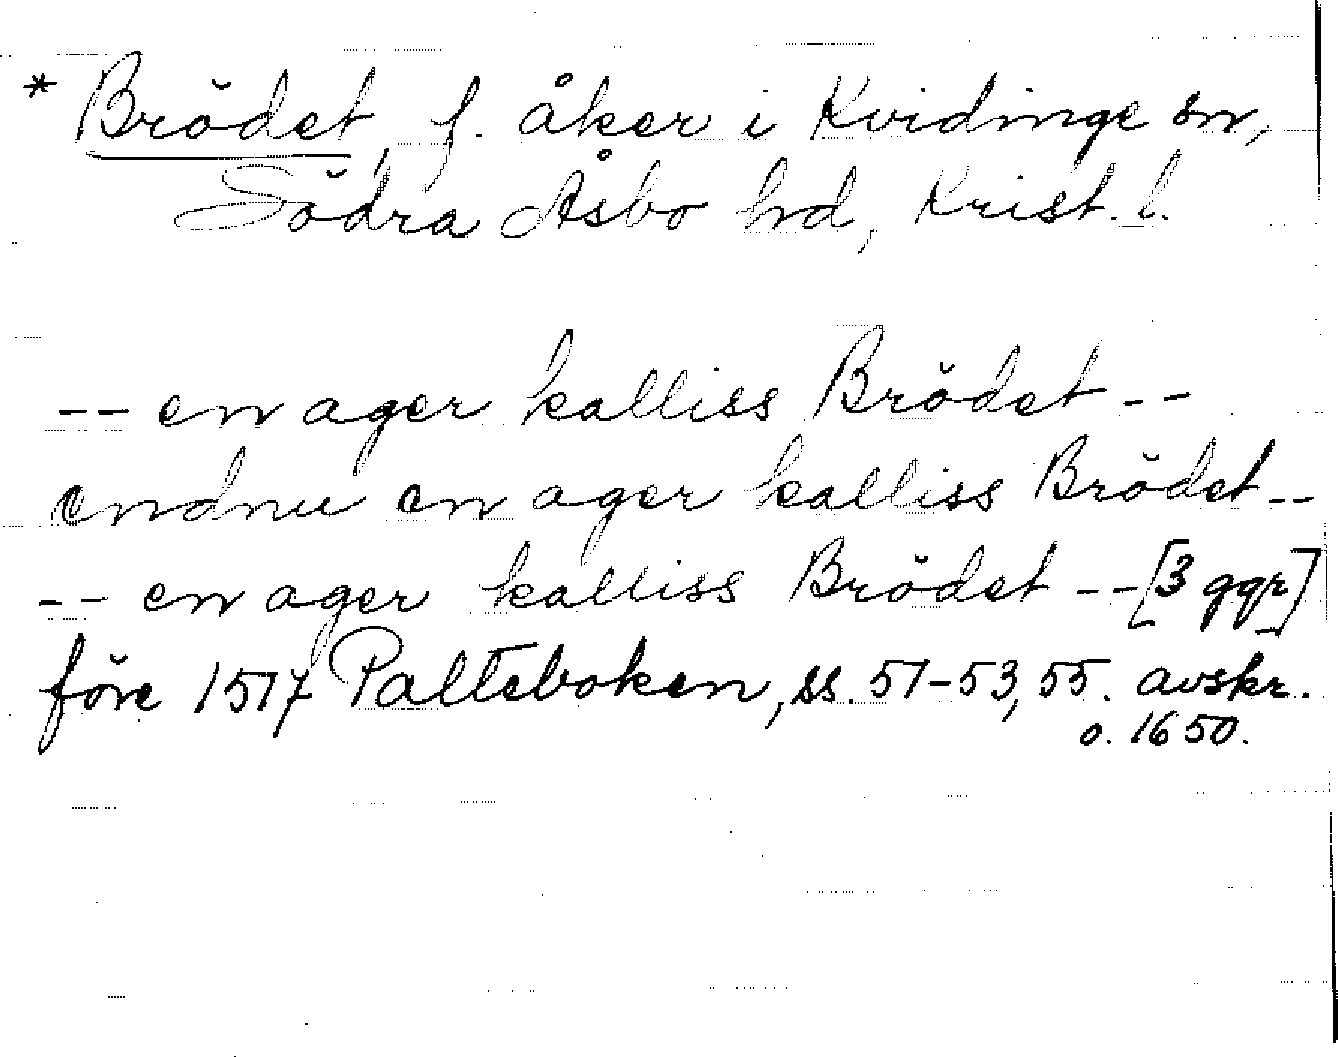 * Brödet, f. åker i Kvidinge sn,
Södra Åsbo hd, Krist. l.
-- en ager kalliss Brödet --
endnu en ager kalliss Brödet --
-- en ager kalliss Brödet -- [3 ggr]
före 1517 Palteboken, ss. 51-53, 55. avskr.
o. 1650.